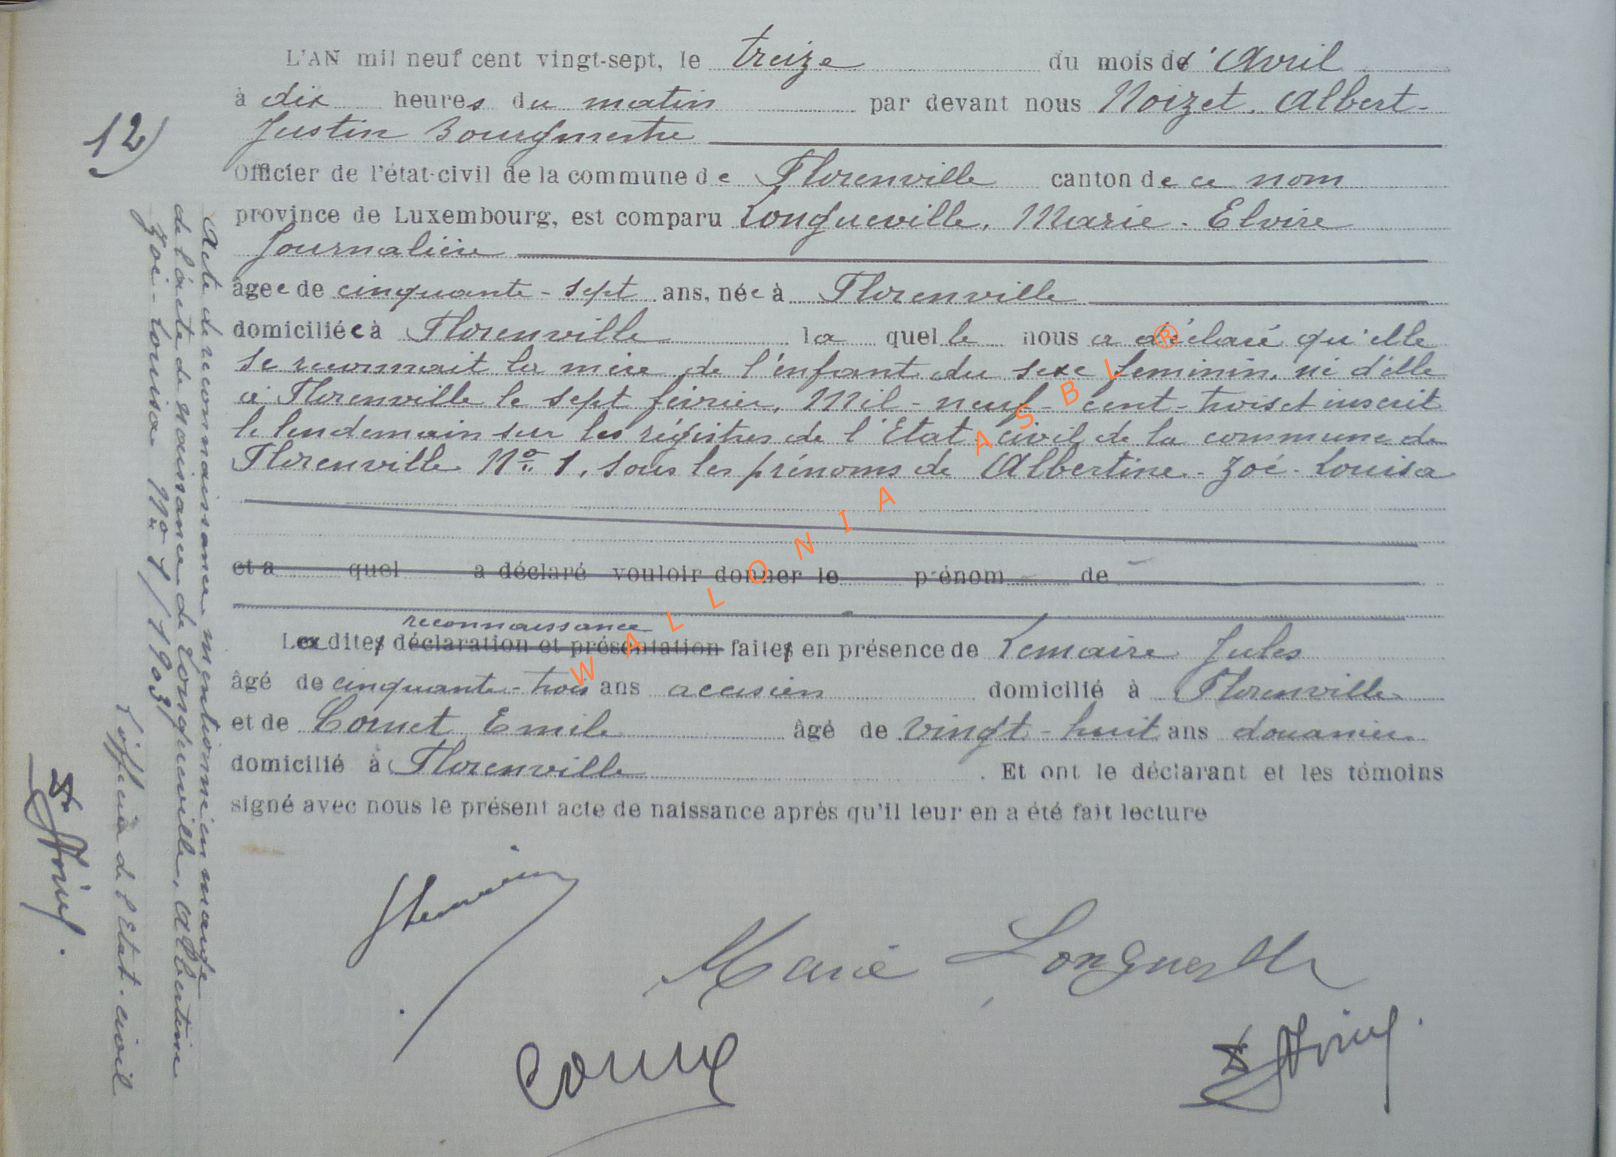 12)
L'AN mil neuf cent vingt-sept, le treize du mois d'Avril
à dix heures du matin par devant nous Noizet. Albert-
Justin Bourgmestre
Officier de l'état-civil de la commune de Florenville canton de ce nom
province de Luxembourg, est comparu Longueville, Marie-Elvire
Journalière
âgée de cinquante-sept ans, née à Florenville
domiciliée à Florenville laquelle nous a déclaré qu'elle
se reconnait la mère de l'enfant du sexe féminin, né d'elle
à Florenville le sept février, Mil-neuf-cent-trois et inscrit
le lendemain sur les régistres de l'Etat civil de la commune de
Florenville No 1, sous les prénoms de Albertine-Zoé-Louisa
et a quel a déclaré vouloir donner le prénom de
reconnaissance
Lesdites déclaration et présentation faites en présence de Lemaire Jules
âgé de cinquante-trois ans accisien domicilié à Florenville
et de Cornet Emile âgé de vingt-huit ans douanier
domicilié à Florenville. Et ont le déclarant et les témoins
signé avec nous le présent acte de naissance après qu'il leur en a été fait lecture
Marie Longueville
Acte de reconnaissance mentionné en marge
de l'acte de naissance de Longueville, Albertine
Zoé-Louisa No 1/1903
L'officier de l'Etat-civil
WALLONIA ASBL ®